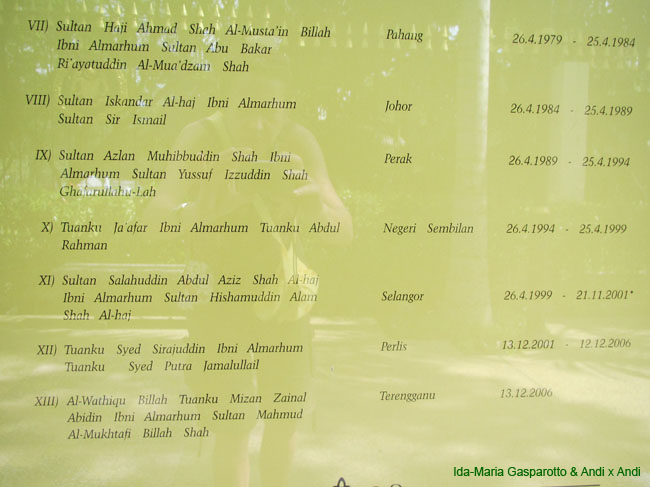 VII) Sultan Haji Ahmad Shah Al-Musta'in Billah
Ibni Almarhum Sultan Abu Bakar
Ri'ayatuddin Al-Mua'dzam Shah
Pahang
26.4.1979 - 25.4.1984
VIII) Sultan Iskandar Al-haj Ibni Almarhum
Sultan Sir Ismail
Johor
26.4.1984 - 25.4.1989
IX) Sultan Azlan Muhibbuddin Shah Ibni
Almarhum Sultan Yussuf Izzuddin Shah
Ghafarullahu-Lah
Perak
26.4.1989 - 25.4.1994
X) Tuanku Ja'afar Ibni Almarhum Tuanku Abdul
Rahman
Negeri Sembilan
26.4.1994 - 25.4.1999
XI) Sultan Salahuddin Abdul Aziz Shah Al-haj
Ibni Almarhum Sultan Hishamuddin Alam
Shah Al-haj
Selangor
26.4.1999 - 21.11.2001*
XII) Tuanku Syed Sirajuddin Ibni Almarhum
Tuanku Syed Putra Jamalullail
Perlis
13.12.2001 - 12.12.2006
XIII) Al-Wathiqu Billah Tuanku Mizan Zainal
Abidin Ibni Almarhum Sultan Mahmud
Al-Mukhtafi Billah Shah
Terengganu
13.12.2006
Ida-Maria Gasparotto & Andi x Andi